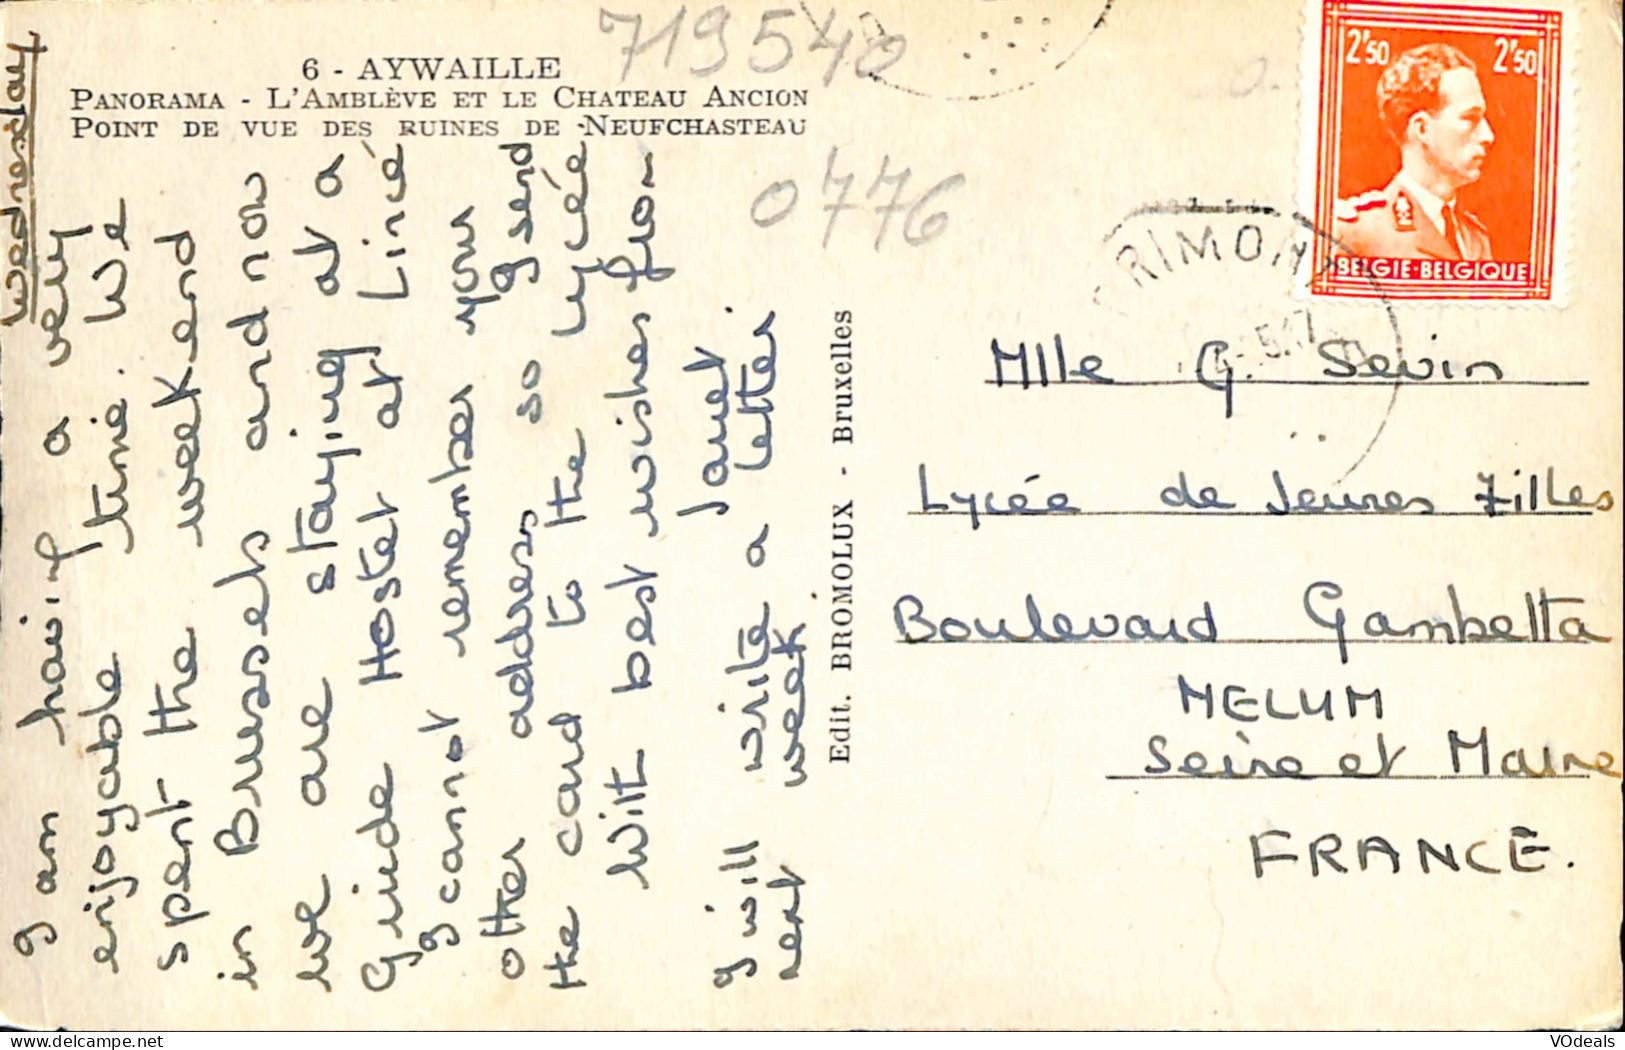 6 - AYWAILLE
PANORAMA - L'AMBLÈVE ET LE CHATEAU ANCION
POINT DE VUE DES RUINES DE NEUFCHASTEAU
719540
0776
Wednesday
I am having a very
enjoyable time. We
spent the weekend
in Brussels and now
we are staying at a
Guide Hostel at Lincé
I cannot remember your
other address so I send
the card to the Lycée
With best wishes from
Janet
I will write a letter
next week
Edit. BROMOLUX - Bruxelles
2'50 2'50
BELGIE-BELGIQUE
RIMONT
Mlle G. Sevin
Lycée de Jeunes Filles
Boulevard Gambetta
MELUN
Seine et Marne
FRANCE.
VOdeals